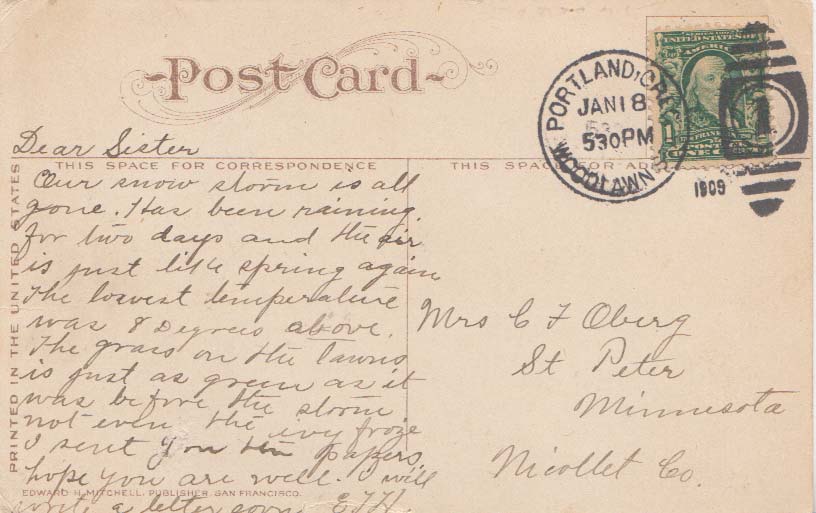 Post Card
PORTLAND, ORE.
JAN 18
530 PM
WOODLAWN
1909
1
SERIES 1902
UNITED STATES OF
AMERICA
FRANKLIN
THIS SPACE FOR CORRESPONDENCE
THIS SPACE FOR ADD
PRINTED IN THE UNITED STATES
Dear Sister
Our snow storm is all
gone. Has been raining
for two days and the air
is just like spring again
The lowest temperature
was 8 Degrees above.
The grass on the lawns
is just as green as it
was before the storm
not even the ivy froze
I sent you the papers
hope you are well. I will
write a letter soon
EDWARD H. MITCHELL, PUBLISHER, SAN FRANCISCO.
Mrs C F Oberg
St Peter
Minnesota
Nicollet Co.